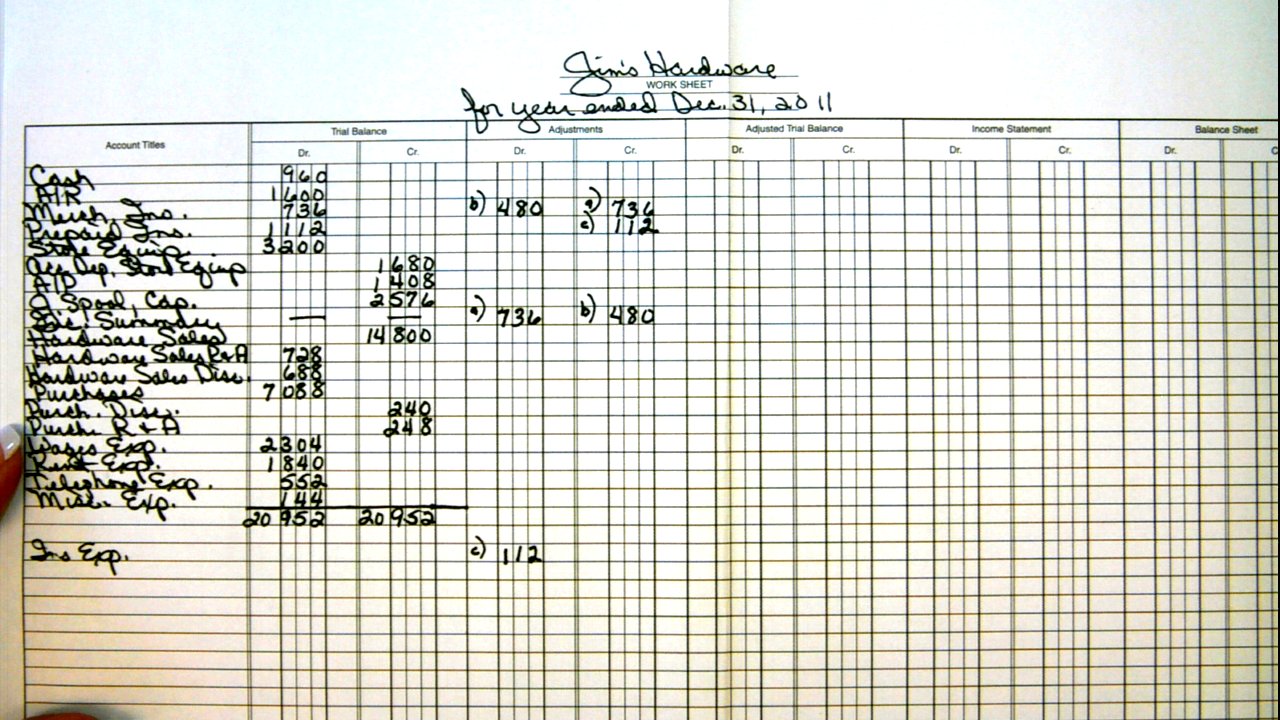 Jim's Hardware
WORK SHEET
for year ended Dec. 31, 2011
Account Titles Trial Balance Adjustments Adjusted Trial Balance Income Statement Balance Sheet
Dr. Cr. Dr. Cr. Dr. Cr. Dr. Cr. Dr. C
Cash 960
A/R 1600
Merch. Inv. 736 b) 480 a) 736
Prepaid Ins. 1112 c) 112
Store Equip. 3200
Acc. Dep. Store Equip 1680
A/P 1408
J. Spool, Cap. 2576
Inc. Summary — — a) 736 b) 480
Hardware Sales 14800
Hardware Sales R+A 728
Hardware Sales Disc. 688
Purchases 7088
Purch. Disc. 240
Purch. R + A 248
Wages Exp. 2304
Rent Exp. 1840
Telephone Exp. 552
Misc. Exp. 144
20952 20952
Ins Exp. c) 112